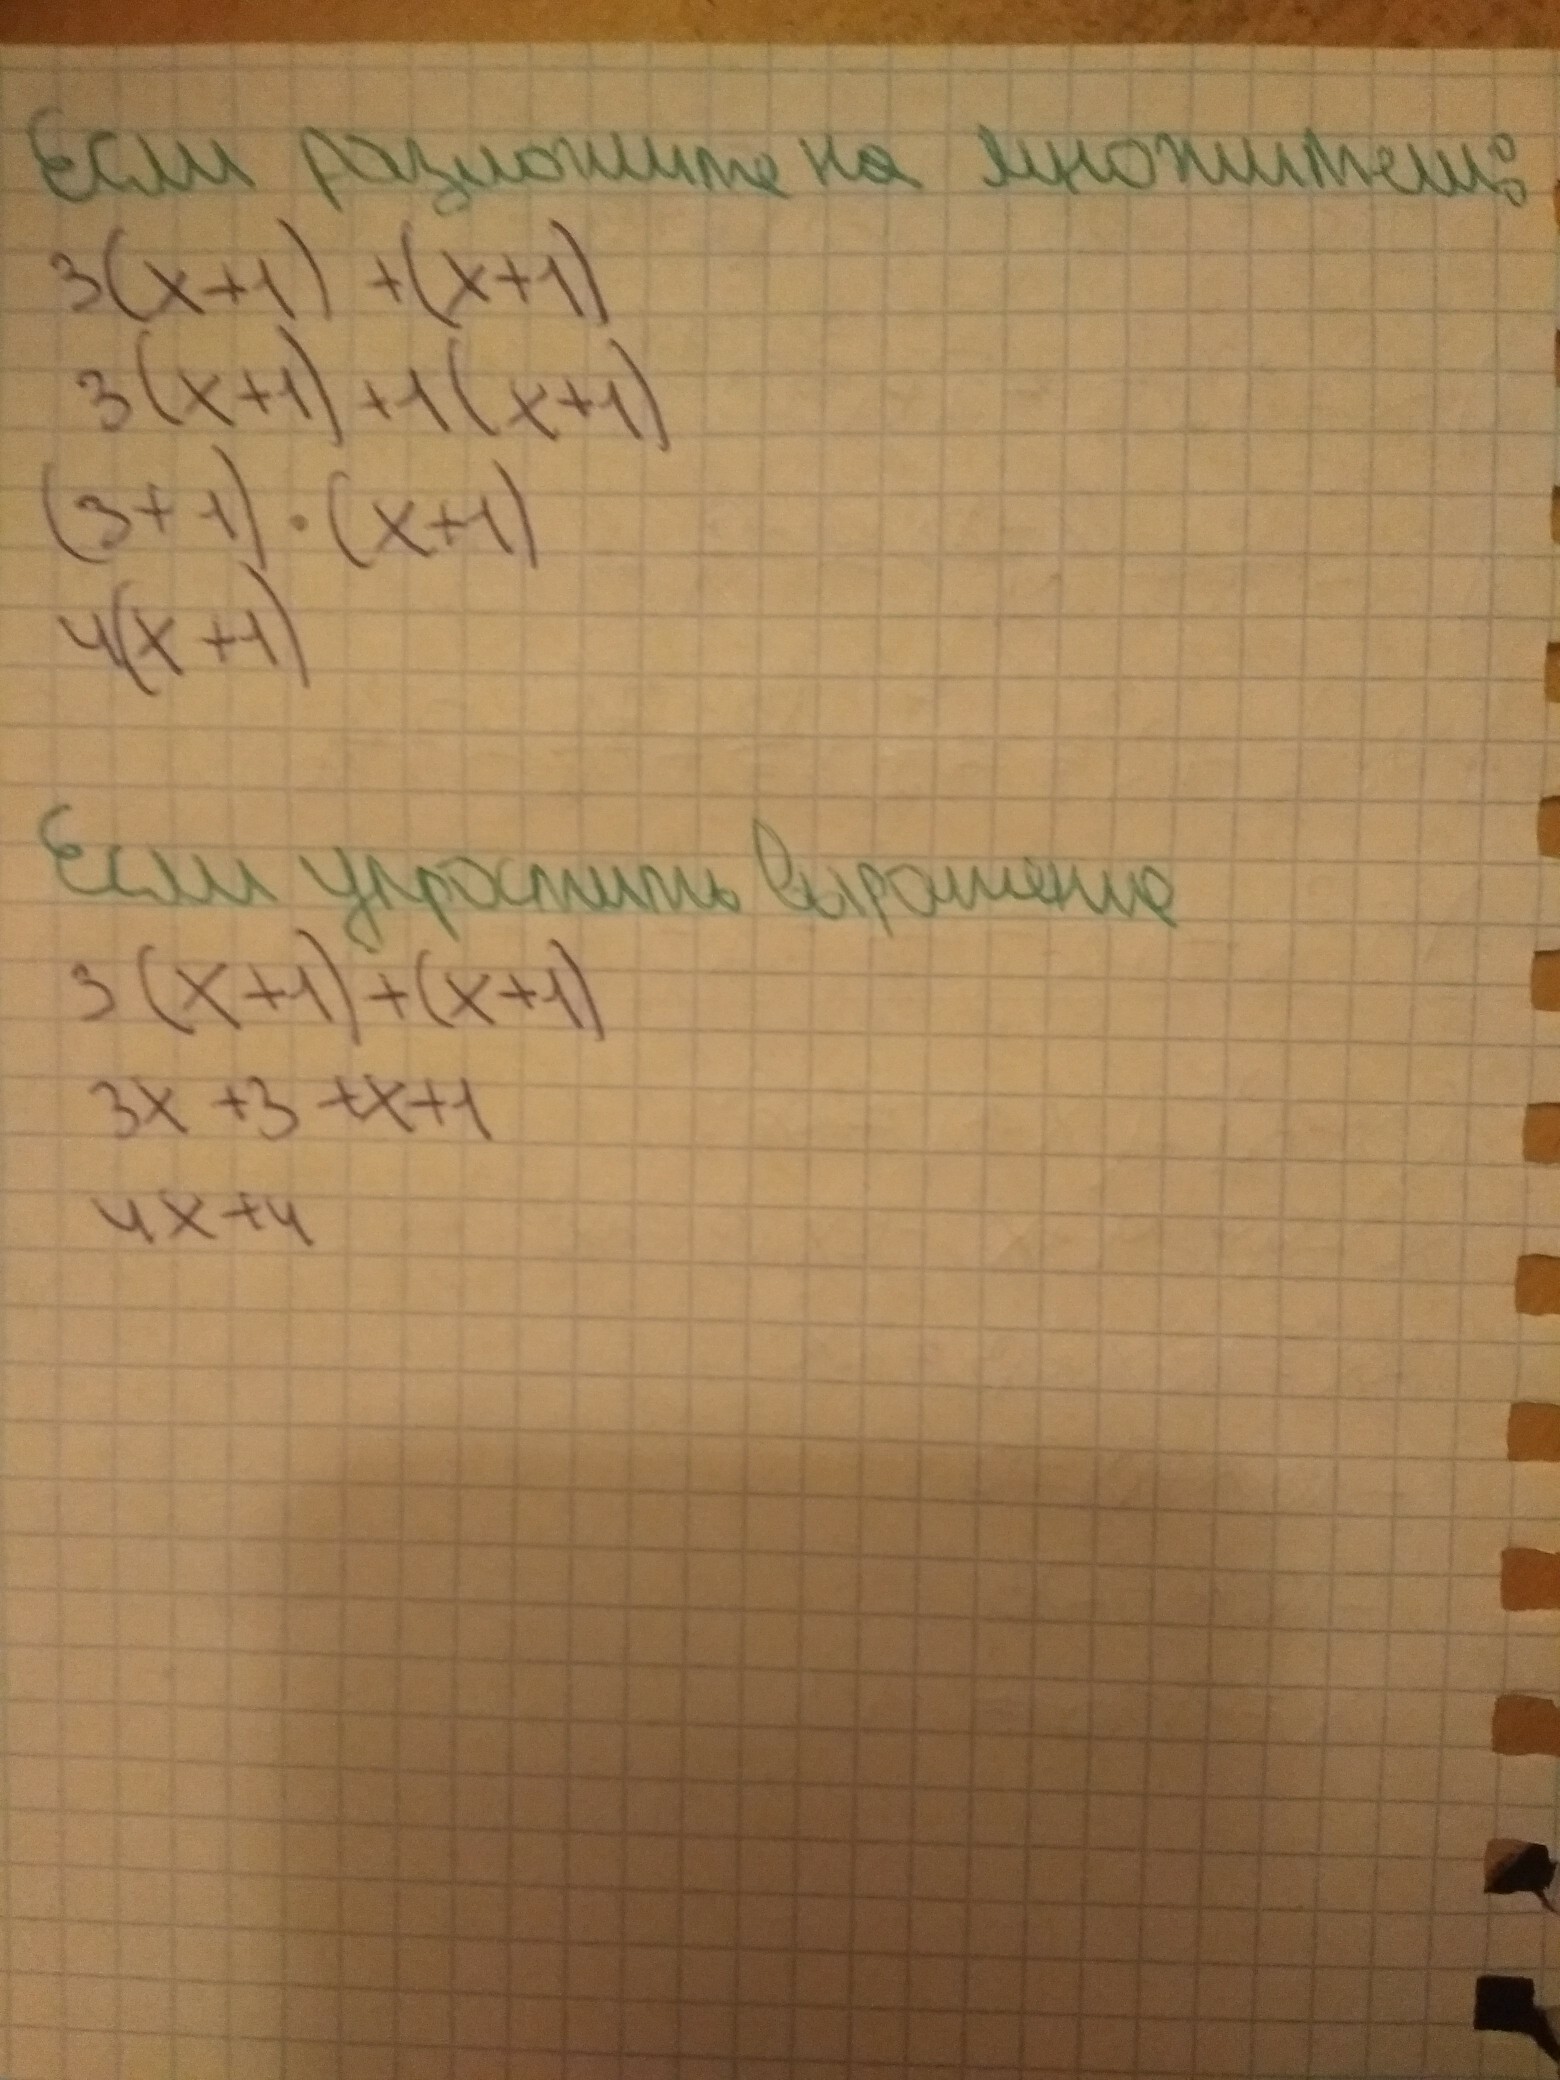 Если разложите на множители:
3(x+1) +(x+1)
3(x+1) +1(x+1)
(3+1)·(x+1)
4(x+1)
Если упростить выражение
3(x+1)+(x+1)
3x+3+x+1
4x+4